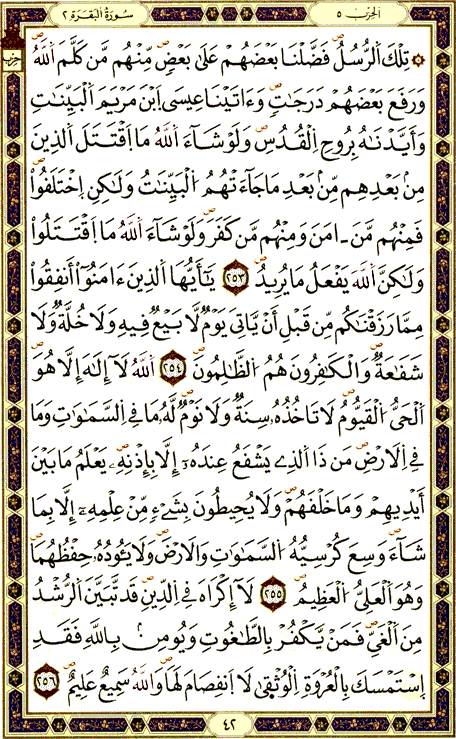 الحزب ٥ سورة البقرة ٢
تِلْكَ اَ۬لرُّسُلُ فَضَّلْنَا بَعْضَهُمْ عَلَىٰ بَعْضٖ مِّنْهُم مَّن كَلَّمَ اَ۬للَّهُ
وَرَفَعَ بَعْضَهُمْ دَرَجَٰتٖ وَءَاتَيْنَا عِيسَى اَ۪بْنَ مَرْيَمَ اَ۬لْبَيِّنَٰتِ
وَأَيَّدْنَٰهُ بِرُوحِ اِ۬لْقُدُسِ وَلَوْ شَآءَ اَ۬للَّهُ مَا اَ۪قْتَتَلَ اَ۬لذِينَ
مِنۢ بَعْدِهِم مِّنۢ بَعْدِ مَا جَآءَتْهُمُ اُ۬لْبَيِّنَٰتُ وَلَٰكِنِ اِ۪خْتَلَفُواْ
فَمِنْهُم مَّنَ ـ امَنَ وَمِنْهُم مَّن كَفَرَ وَلَوْ شَآءَ اَ۬للَّهُ مَا اَ۪قْتَتَلُواْ
وَلَٰكِنَّ اَ۬للَّهَ يَفْعَلُ مَا يُرِيدُ ٢٥٣ يَٰٓأَيُّهَا اَ۬لذِينَ ءَامَنُوٓاْ أَنفِقُواْ
مِمَّا رَزَقْنَٰكُم مِّن قَبْلِ أَنْ يَّاتِيَ يَوْمٞ لَّا بَيْعٞ فِيهِ وَلَا خُلَّةٞ وَلَا
شَفَٰعَةٞ وَالْكَٰفِرُونَ هُمُ اُ۬لظَّٰلِمُونَ ٢٥٤ اَ۬للَّهُ لَآ إِلَٰهَ إِلَّا هُوَ
اَ۬لْحَيُّ اُ۬لْقَيُّومُ لَا تَاخُذُهُۥ سِنَةٞ وَلَا نَوْمٞ لَّهُۥ مَا فِي اِ۬لسَّمَٰوَٰتِ وَمَا
فِي اِ۬لَارْضِ مَن ذَا اَ۬لذِے يَشْفَعُ عِندَهُۥٓ إِلَّا بِإِذْنِهِۦ يَعْلَمُ مَا بَيْنَ
أَيْدِيهِمْ وَمَا خَلْفَهُمْ وَلَا يُحِيطُونَ بِشَےْءٖ مِّنْ عِلْمِهِۦٓ إِلَّا بِمَا
شَآءَ وَسِعَ كُرْسِيُّهُ اُ۬لسَّمَٰوَٰتِ وَالَارْضَ وَلَا يَـُٔودُهُۥ حِفْظُهُمَا
وَهُوَ اَ۬لْعَلِيُّ اُ۬لْعَظِيمُ ٢٥٥ لَآ إِكْرَاهَ فِي اِ۬لدِّينِ قَد تَّبَيَّنَ اَ۬لرُّشْدُ
مِنَ اَ۬لْغَيِّ فَمَنْ يَّكْفُرْ بِالطَّٰغُوتِ وَيُومِنۢ بِاللَّهِ فَقَدِ
اِ۪سْتَمْسَكَ بِالْعُرْوَةِ اِ۬لْوُثْقَىٰ لَا اَ۪نفِصَامَ لَهَا وَاللَّهُ سَمِيعٌ عَلِيمٌ ٢٥٦
٤٢